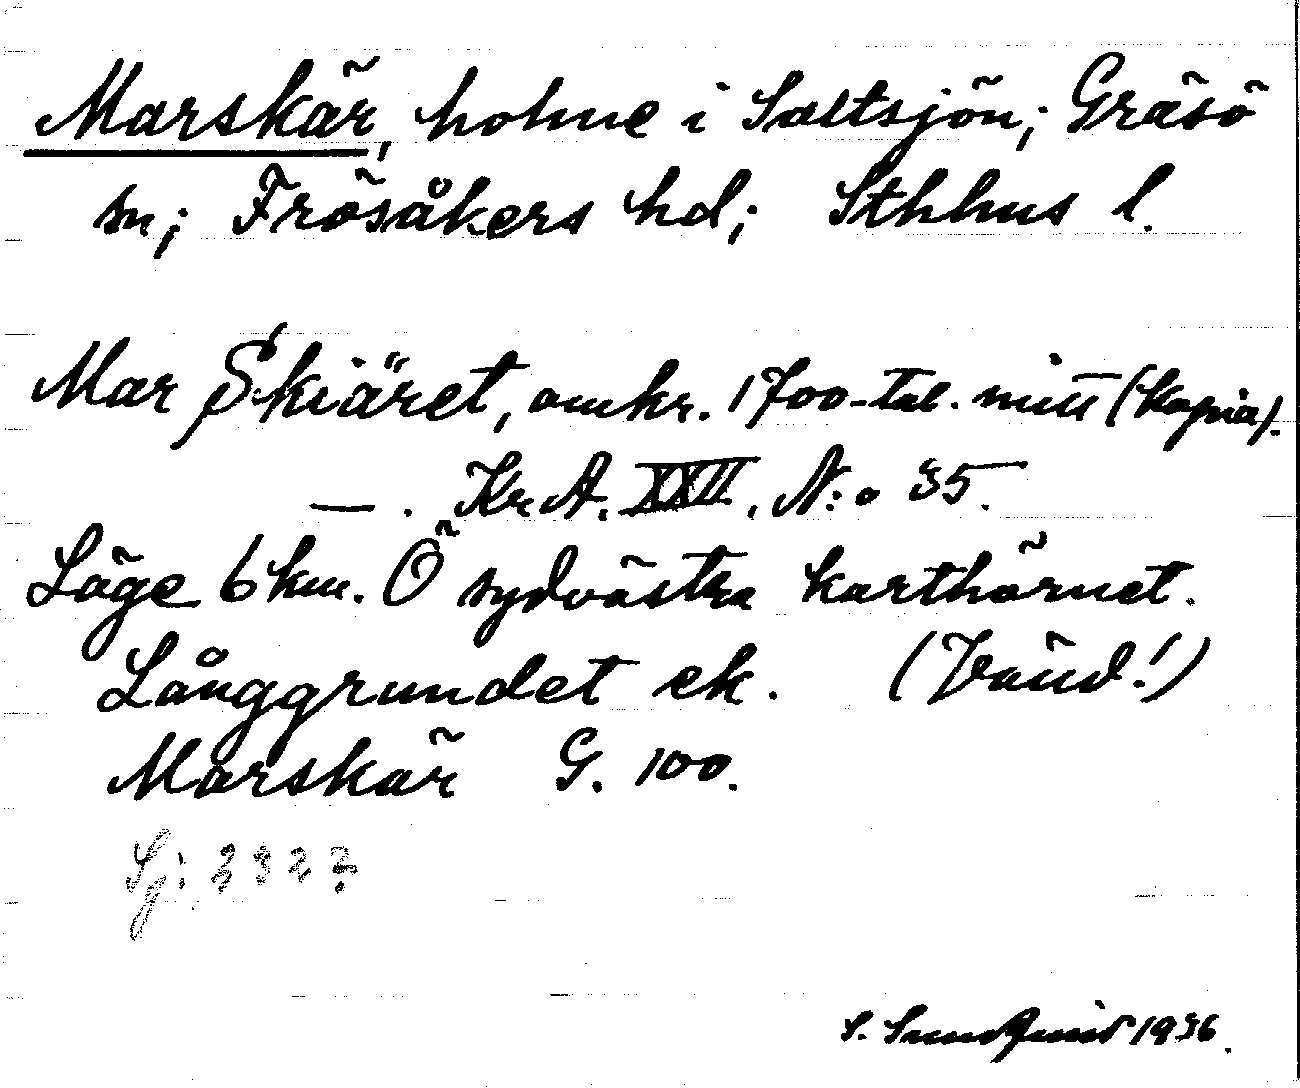 Marskär, holme i Saltsjön; Gräsö
sn; Frösåkers hd; Sthhus l.
Mar Skiäret, omkr. 1700-tal. mitt (kopia).
—. Kr A. XXII, N:o 35.
Läge 6 km. Ö sydvästra karthörnet.
Långgrundet ek. (Vänd!)
Marskär G. 100.
Sj: 2322
S. Sundquist 1936.